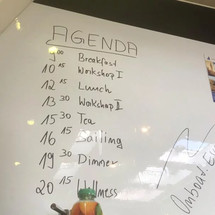 AGENDA
9⁰⁰ Breakfast
10¹⁵ Workshop I
12¹⁵ Lunch
13³⁰ Workshop II
15³⁰ Tea
16¹⁵ Sailing
19³⁰ Dinner
20¹⁵ Wellness
Onboard